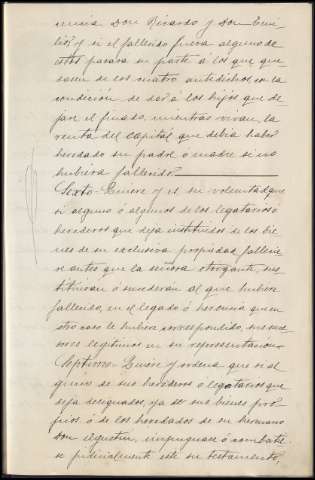 nuia Don Ricardo y Don Emi-
lio, y si el fallecido fuera alguno de
estos pasará su parte á los que que-
dasen de los cuatro antedichos con la
condición de dar á los hijos que de-
jare el finado, mientras vivan, la
renta del capital que debía haber
heredado su padre ó madre si no
hubiera fallecido.
Sexto = Quiere y es su voluntad que
si alguno ó algunos de los legatarios ó
herederos que deja instituidos de los bie-
nes de su exclusiva propiedad fallecie-
se antes que la señora otorgante, sus-
tituirán ó sucederán al que hubiere
fallecido, en el legado ó herencia que en
otro caso le hubiera correspondido, sus suce-
sores legitimos en su representacion =
Septimo = Quiere y ordena que si al-
guno de sus herederos ó legatarios que
deja designados, ya de sus bienes pro-
pios ó de los heredados de su hermano
Don Agustin, impugnase ó combatie-
se judicialmente este su testamento,